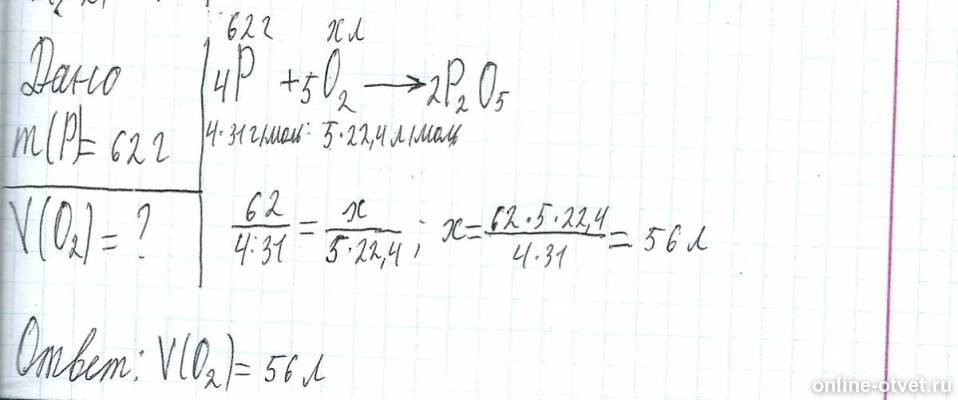 Дано
m(P)= 62 г
V(O₂) = ?
62 г x л
4P + 5O₂ → 2P₂O₅
4·31 г/моль: 5·22,4 л/моль
62/4·31 = x/5·22,4; x = 62·5·22,4/4·31 = 56 л
Ответ: V(O₂) = 56 л
online-otvet.ru